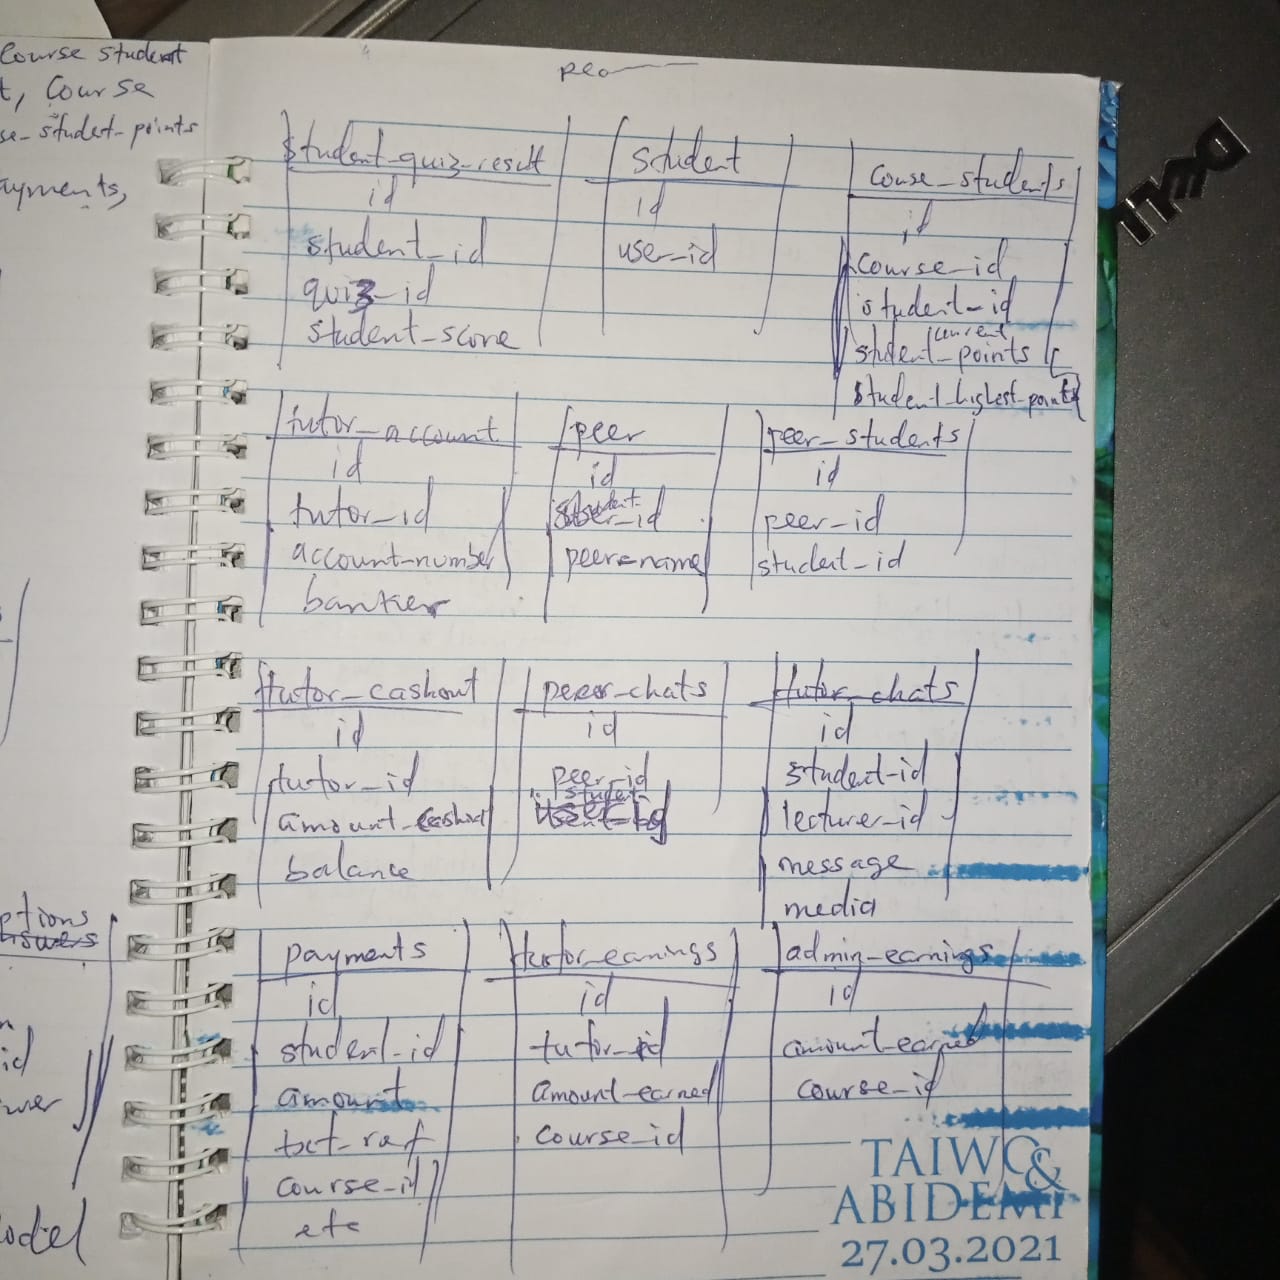 Course student
t, Course
se-student-points
ayments,
peo
student-quiz-result
id
student_id
quiz-id
student-score
student
id
use-id
couse_students
id
course-id
student-id
current
student-points
student-highest-points
tutor_account
id
tutor_id
account-number
banker
peer
id
student
_id
peer-name
peer-students
id
peer-id
student-id
tutor-cashout
id
tutor-id
amount-cashout
balance
peer-chats
id
peer-id
student
tutor-chats
id
student-id
lecturer-id
message
media
ptions
id
odel
payments
id
student-id
amount
txt-ref
course-id
etc
tutor-earnings
id
tutor-id
amount-earned
course-id
admin-earnings
id
amount-earned
course-id
TAIWO &
ABIDEMI
27.03.2021
DELL